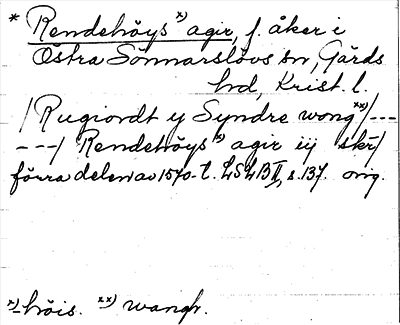 * Rendehöys x) agir, f. åker i
Östra Sönnarslövs sn, Gärds
hd, Krist. l.
/Rugiordt y Syndre wong xx)/---
---/ Rendehöys x) agir iij skr/
förra delen av 1570-t. LSLB II, s. 137. orig.
x) -höis. xx) wangh.